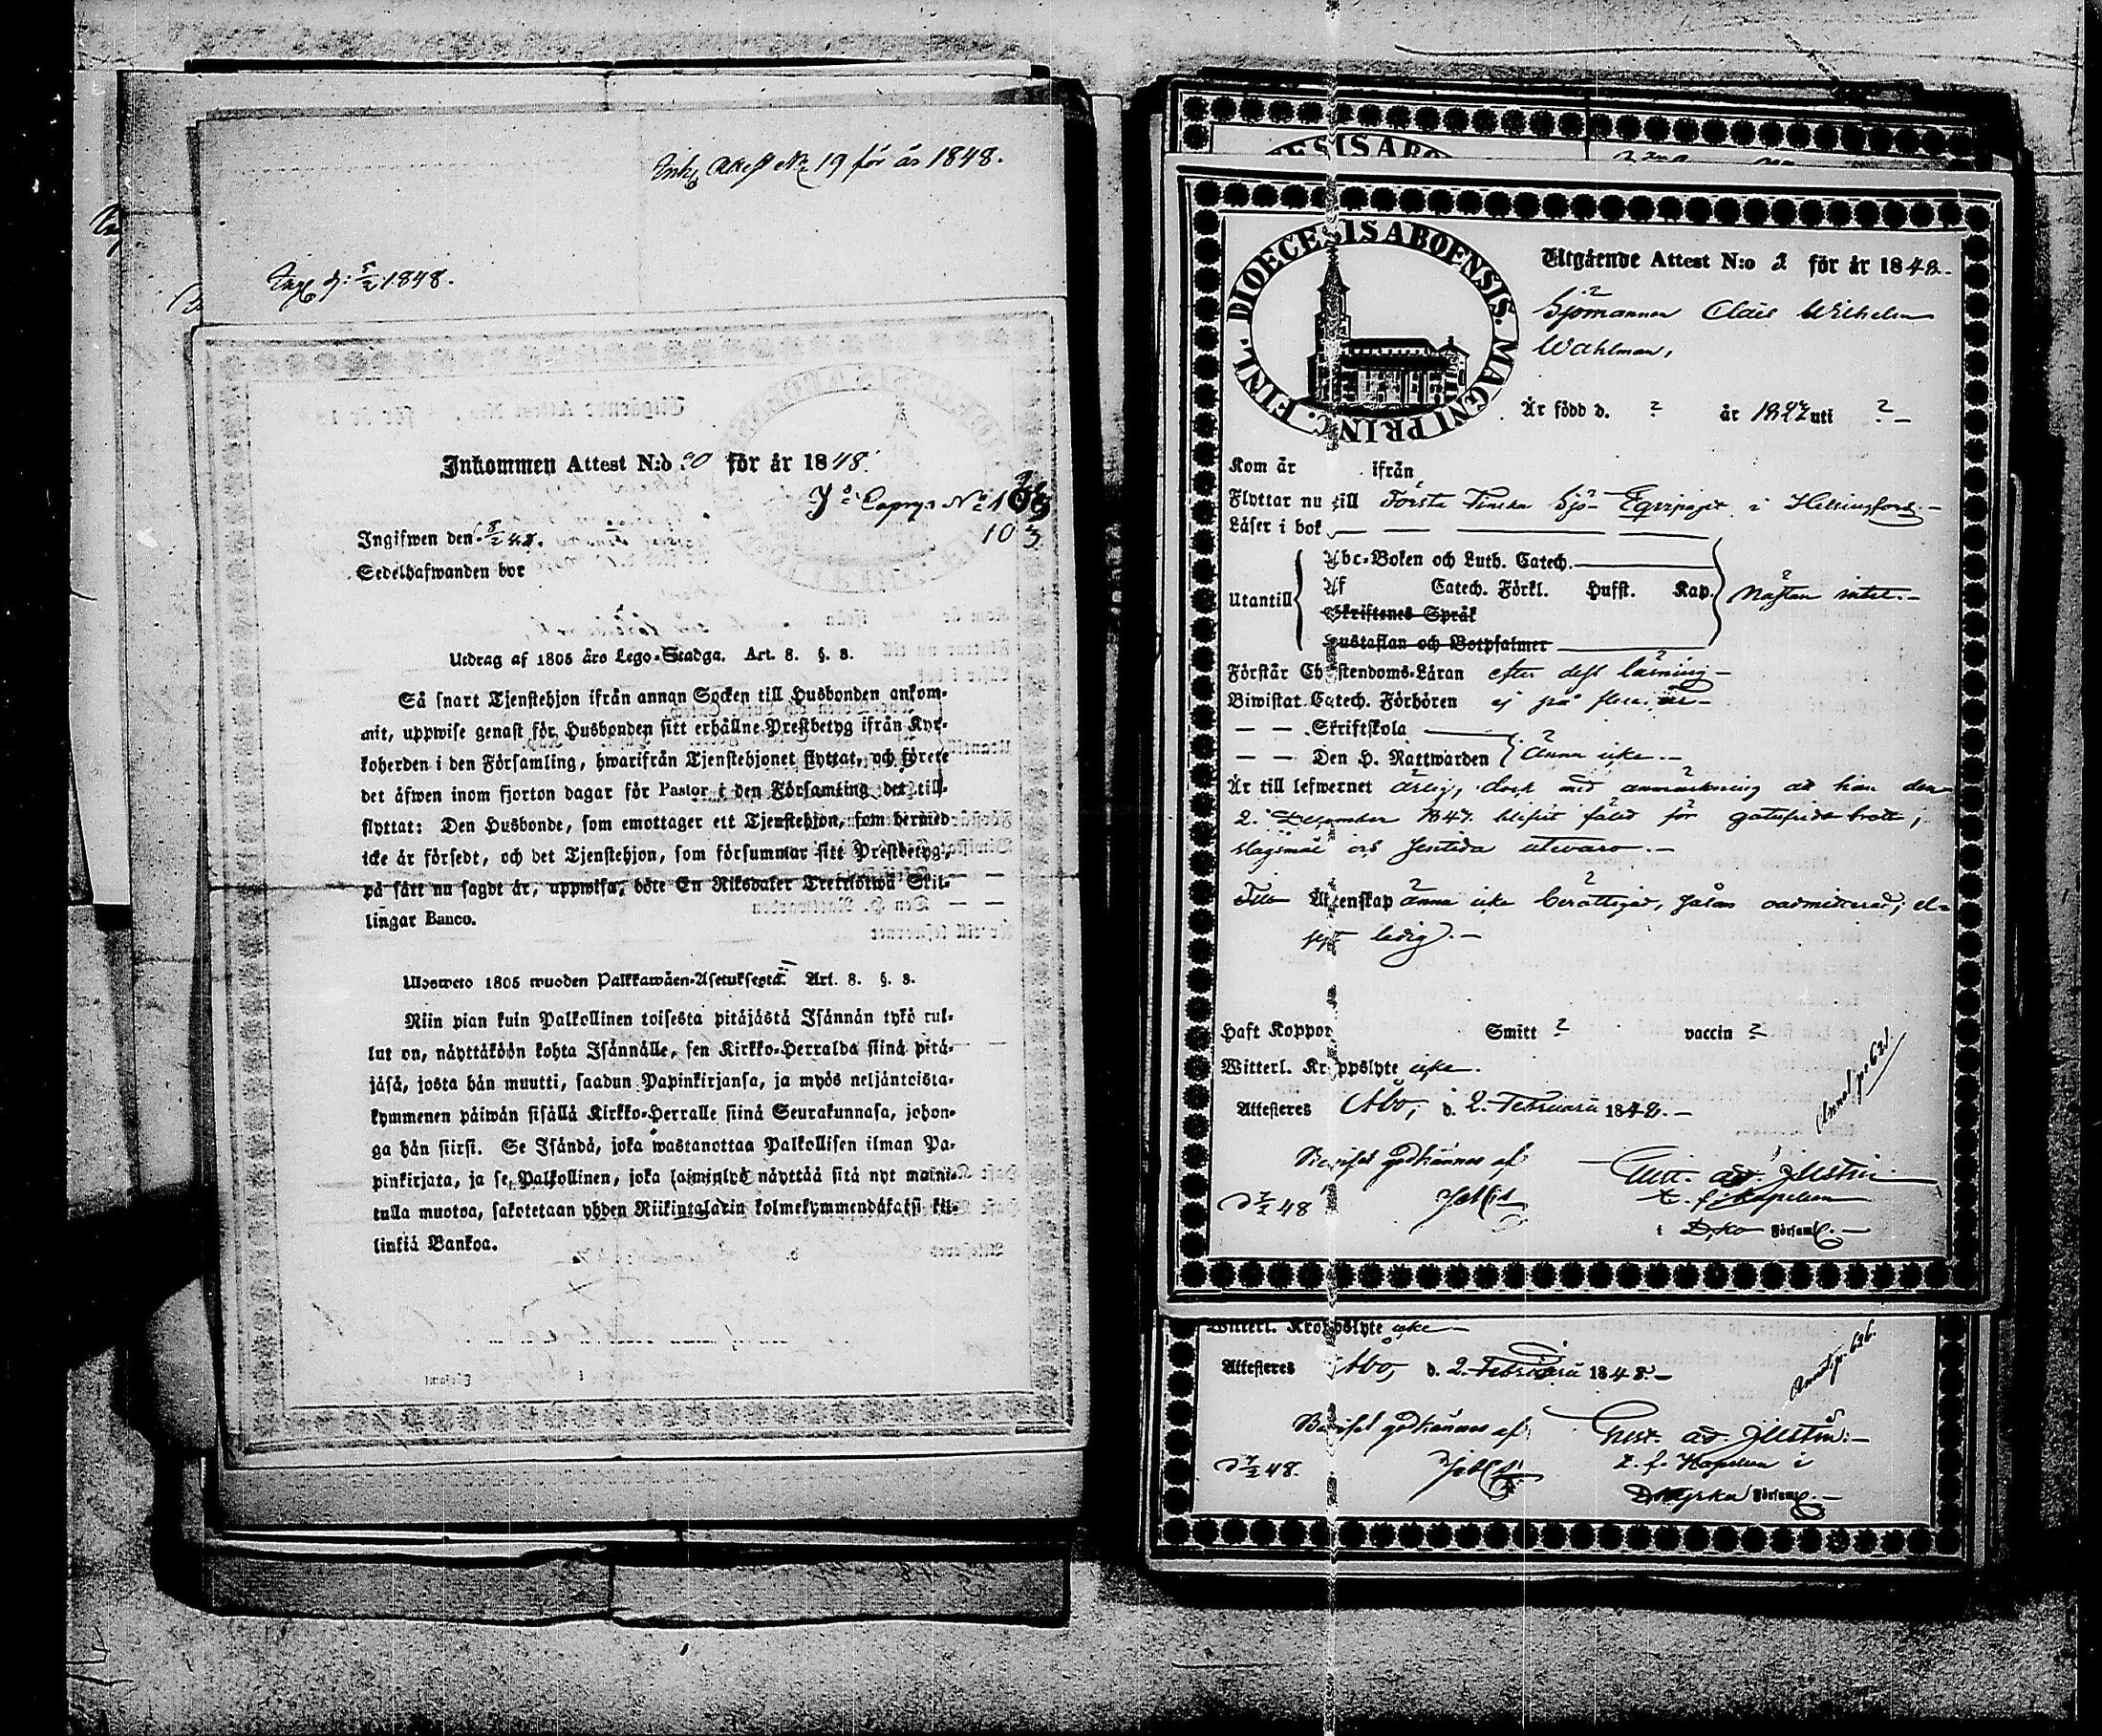 Attest No 19 för år 1848.
d: 5/2 1848.
Inkommen Attest N:o 20 för år 1848.
Comp. No 103
103
Ingifwen den 8/2 48.
Sedelhafwanden bor
Utdrag af 1805 års Lego-Stadga. Art. 8. §. 8.
Så snart Tjenstehjon ifrån annan Socken till Husbonden ankom-
mit, uppwise genast för Husbonden sitt erhållne Prestbetyg ifrån Kyr-
koherden i den Församling, hwarifrån Tjenstehjonet flyttat, och förete
det äfwen inom fjorton dagar för Pastor i den Församling det till-
flyttat: Den Husbonde, som emottager ett Tjenstehjon, som dermed
icke är försedt, och det Tjenstehjon, som försummar sitt Prestbetyg,
på sätt nu sagdt är, uppwisa, böte En Riksdaler Trettiotwå Skil-
lingar Banco.
Ulosweto 1805 wuoden Palkkawäen-Asetuksesta. Art. 8. §. 8.
Niin pian kuin Palkollinen toisesta pitäjästä Isännän tykö tul-
lut on, näyttäköön kohta Isännälle, sen Kirkko-Herralda siinä pitä-
jäsä, josta hän muutti, saadun Papinkirjansa, ja myös neljäntoista-
kymmenen päiwän sisällä Kirkko-Herralle siinä Seurakunnasa, johon-
ga hän siirsi. Se Isändä, joka wastanottaa Palkollisen ilman Pa-
pinkirjata, ja se Palkollinen, joka laiminlyö näyttää sitä nyt maini-
tulla muotoa, sakotetaan yhden Riikintalarin kolmekymmendäkaksi kil-
linkiä Bankoa.
DIOECESIS ABOENSIS. MAGNI PRINC. FINL.
Utgående Attest N:o 2 för år 1848.
Sjömannen Claës Wilhelm
Wahlman,
Är född d. ? år 1827 uti ?
Kom är ifrån
Flyttar nu till Första Finska Sjö-Equipaget i Helsingfors.
Läser i bok
Utantill
Abc-Boken och Luth. Catech.
Af Catech. Förkl. Hufst. Kap. Nästan intet.
Skriftenes Språk
Hustaflan och Botpsalmer
Förstår Christendoms-Läran efter dess läsning
Biwistat Catech. Förhören ej på flera år
— — Skriftskola
— — Den H. Nattwarden ännu icke.
Är till lefwernet ärlig, dock med anmärkning at han den
2. December 1847 blifvit fälld för gatufrids brott,
slagsmål och sentida utevaro.
Till Äktenskap ännu icke berättigad, såsom oadmitterad; el-
jest ledig.
Haft Koppor Smitt ? vaccin ?
Witterl. Kroppslyte icke.
Attesteras Åbo, d. 2. Februarii 1848.
Betyget godkännes af
d 3/2 48
t. f. Kapellan
i D.ko Församl.
Witterl. Kroppslyte icke
Attesteras Åbo, d. 2. Februarii 1848.
Betyget godkännes af
48.
t. f. Kapellan i
Församl.